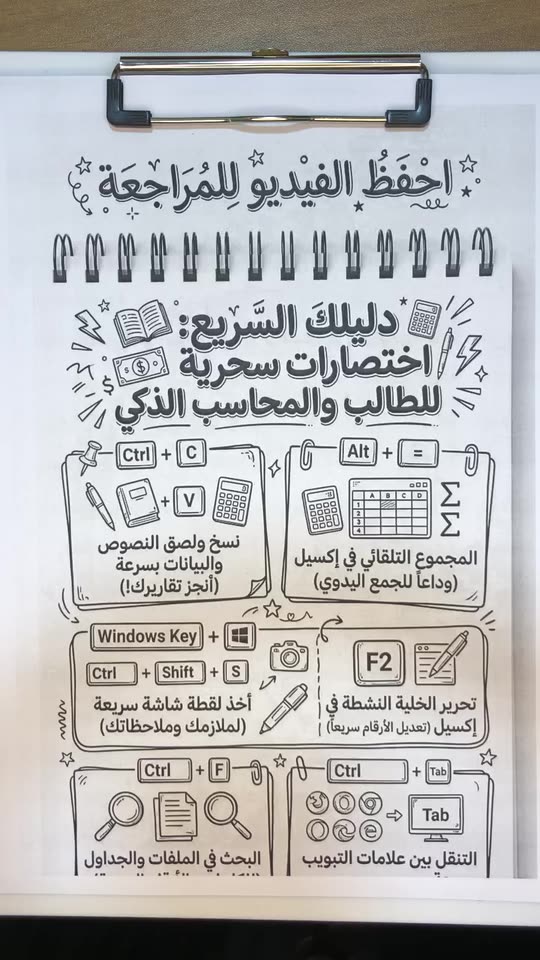 احْفَظُ الفيْديو لِلمُرَاجَعَة
دليلكَ السَّريع:
اختصارات سحرية
للطالب والمحاسب الذكي
Alt + =
A B C D
1
2
3
4
Σ
Σ
المجموع التلقائي في إكسيل
(وداعاً للجمع اليدوي)
Ctrl + C
+ V
نسخ ولصق النصوص
والبيانات بسرعة
(أنجز تقاريرك!)
F2
تحرير الخلية النشطة في
إكسيل (تعديل الأرقام سريعاً)
Windows Key +
Ctrl + Shift + S
أخذ لقطة شاشة سريعة
(لملازمك وملاحظاتك)
Ctrl + Tab
Tab
التنقل بين علامات التبويب
Ctrl + F
البحث في الملفات والجداول